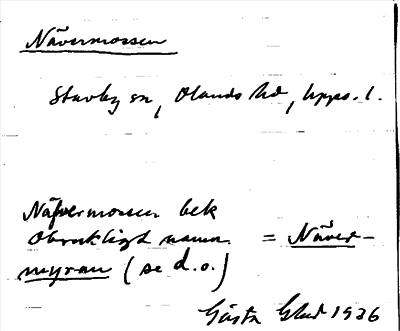 Nävermossen
Stavby sn, Olands hd, Upps. l.
Näfvermossen bek
Obrukligt namn. = Näver-
myran (se d.o.)
Gösta Glad 1936